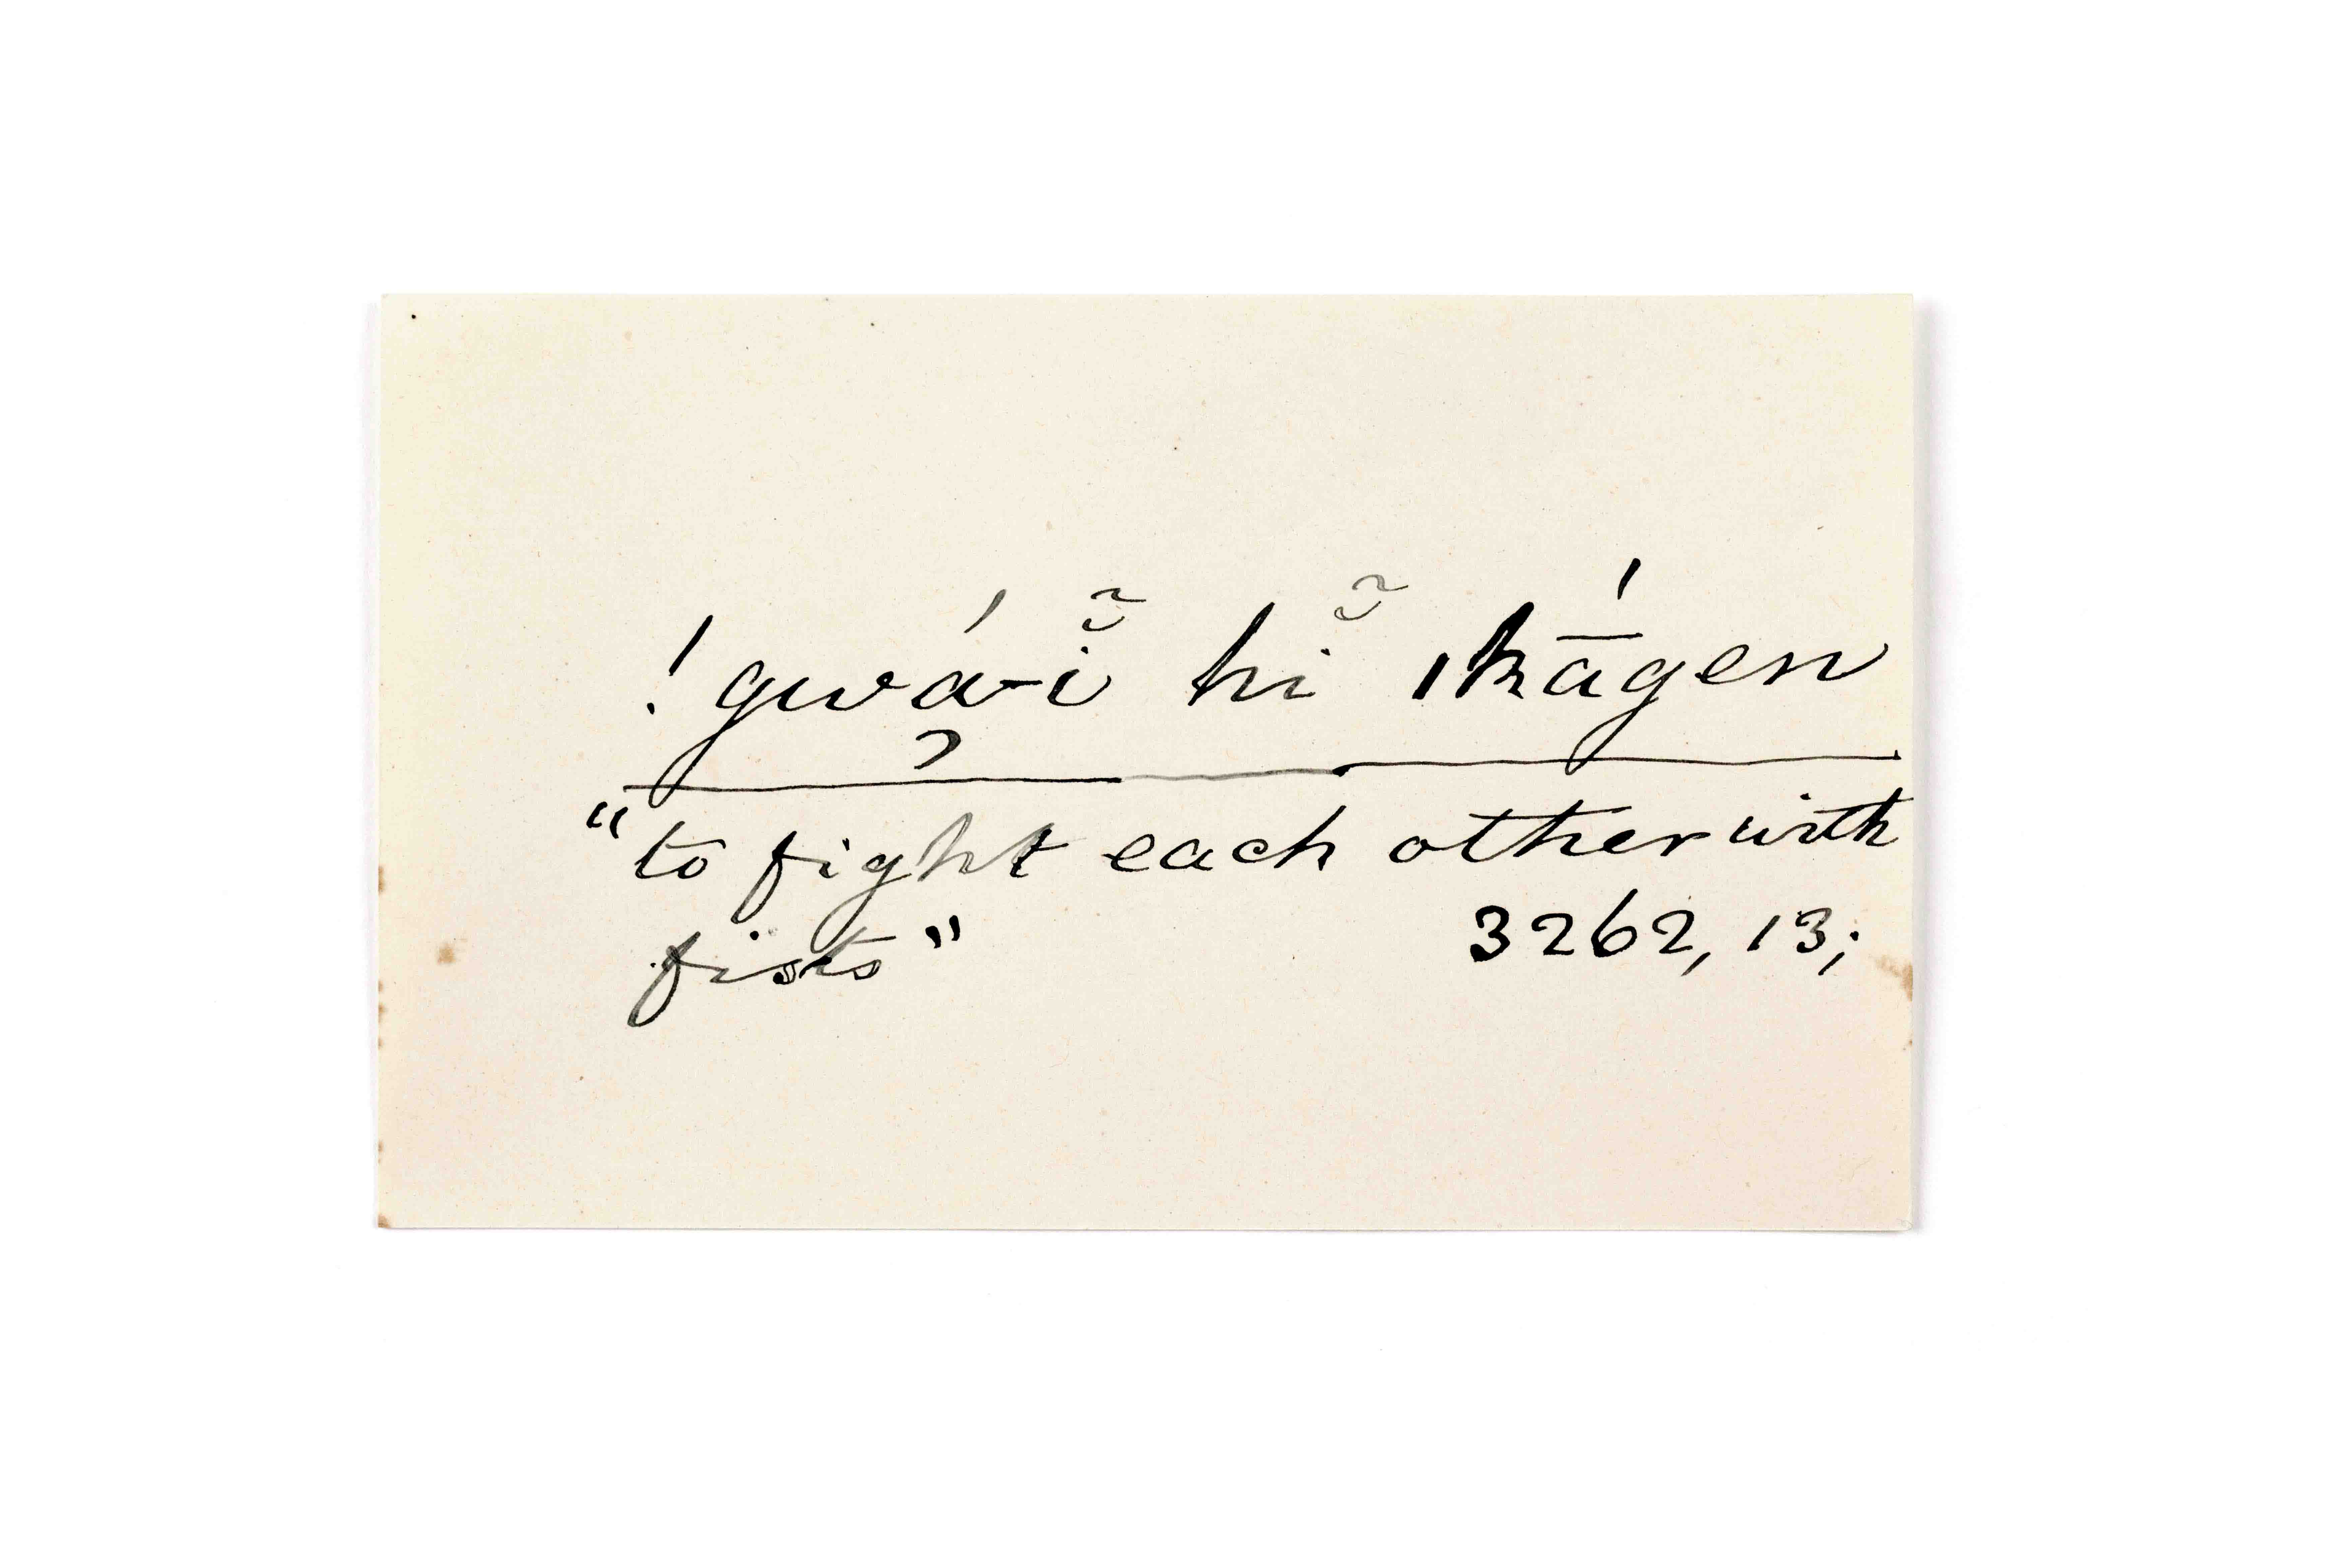 !gwá̦-ĭ̃ hĭ̃ ǀkā́gen
"to fight each other with
fists" 3262, 13;